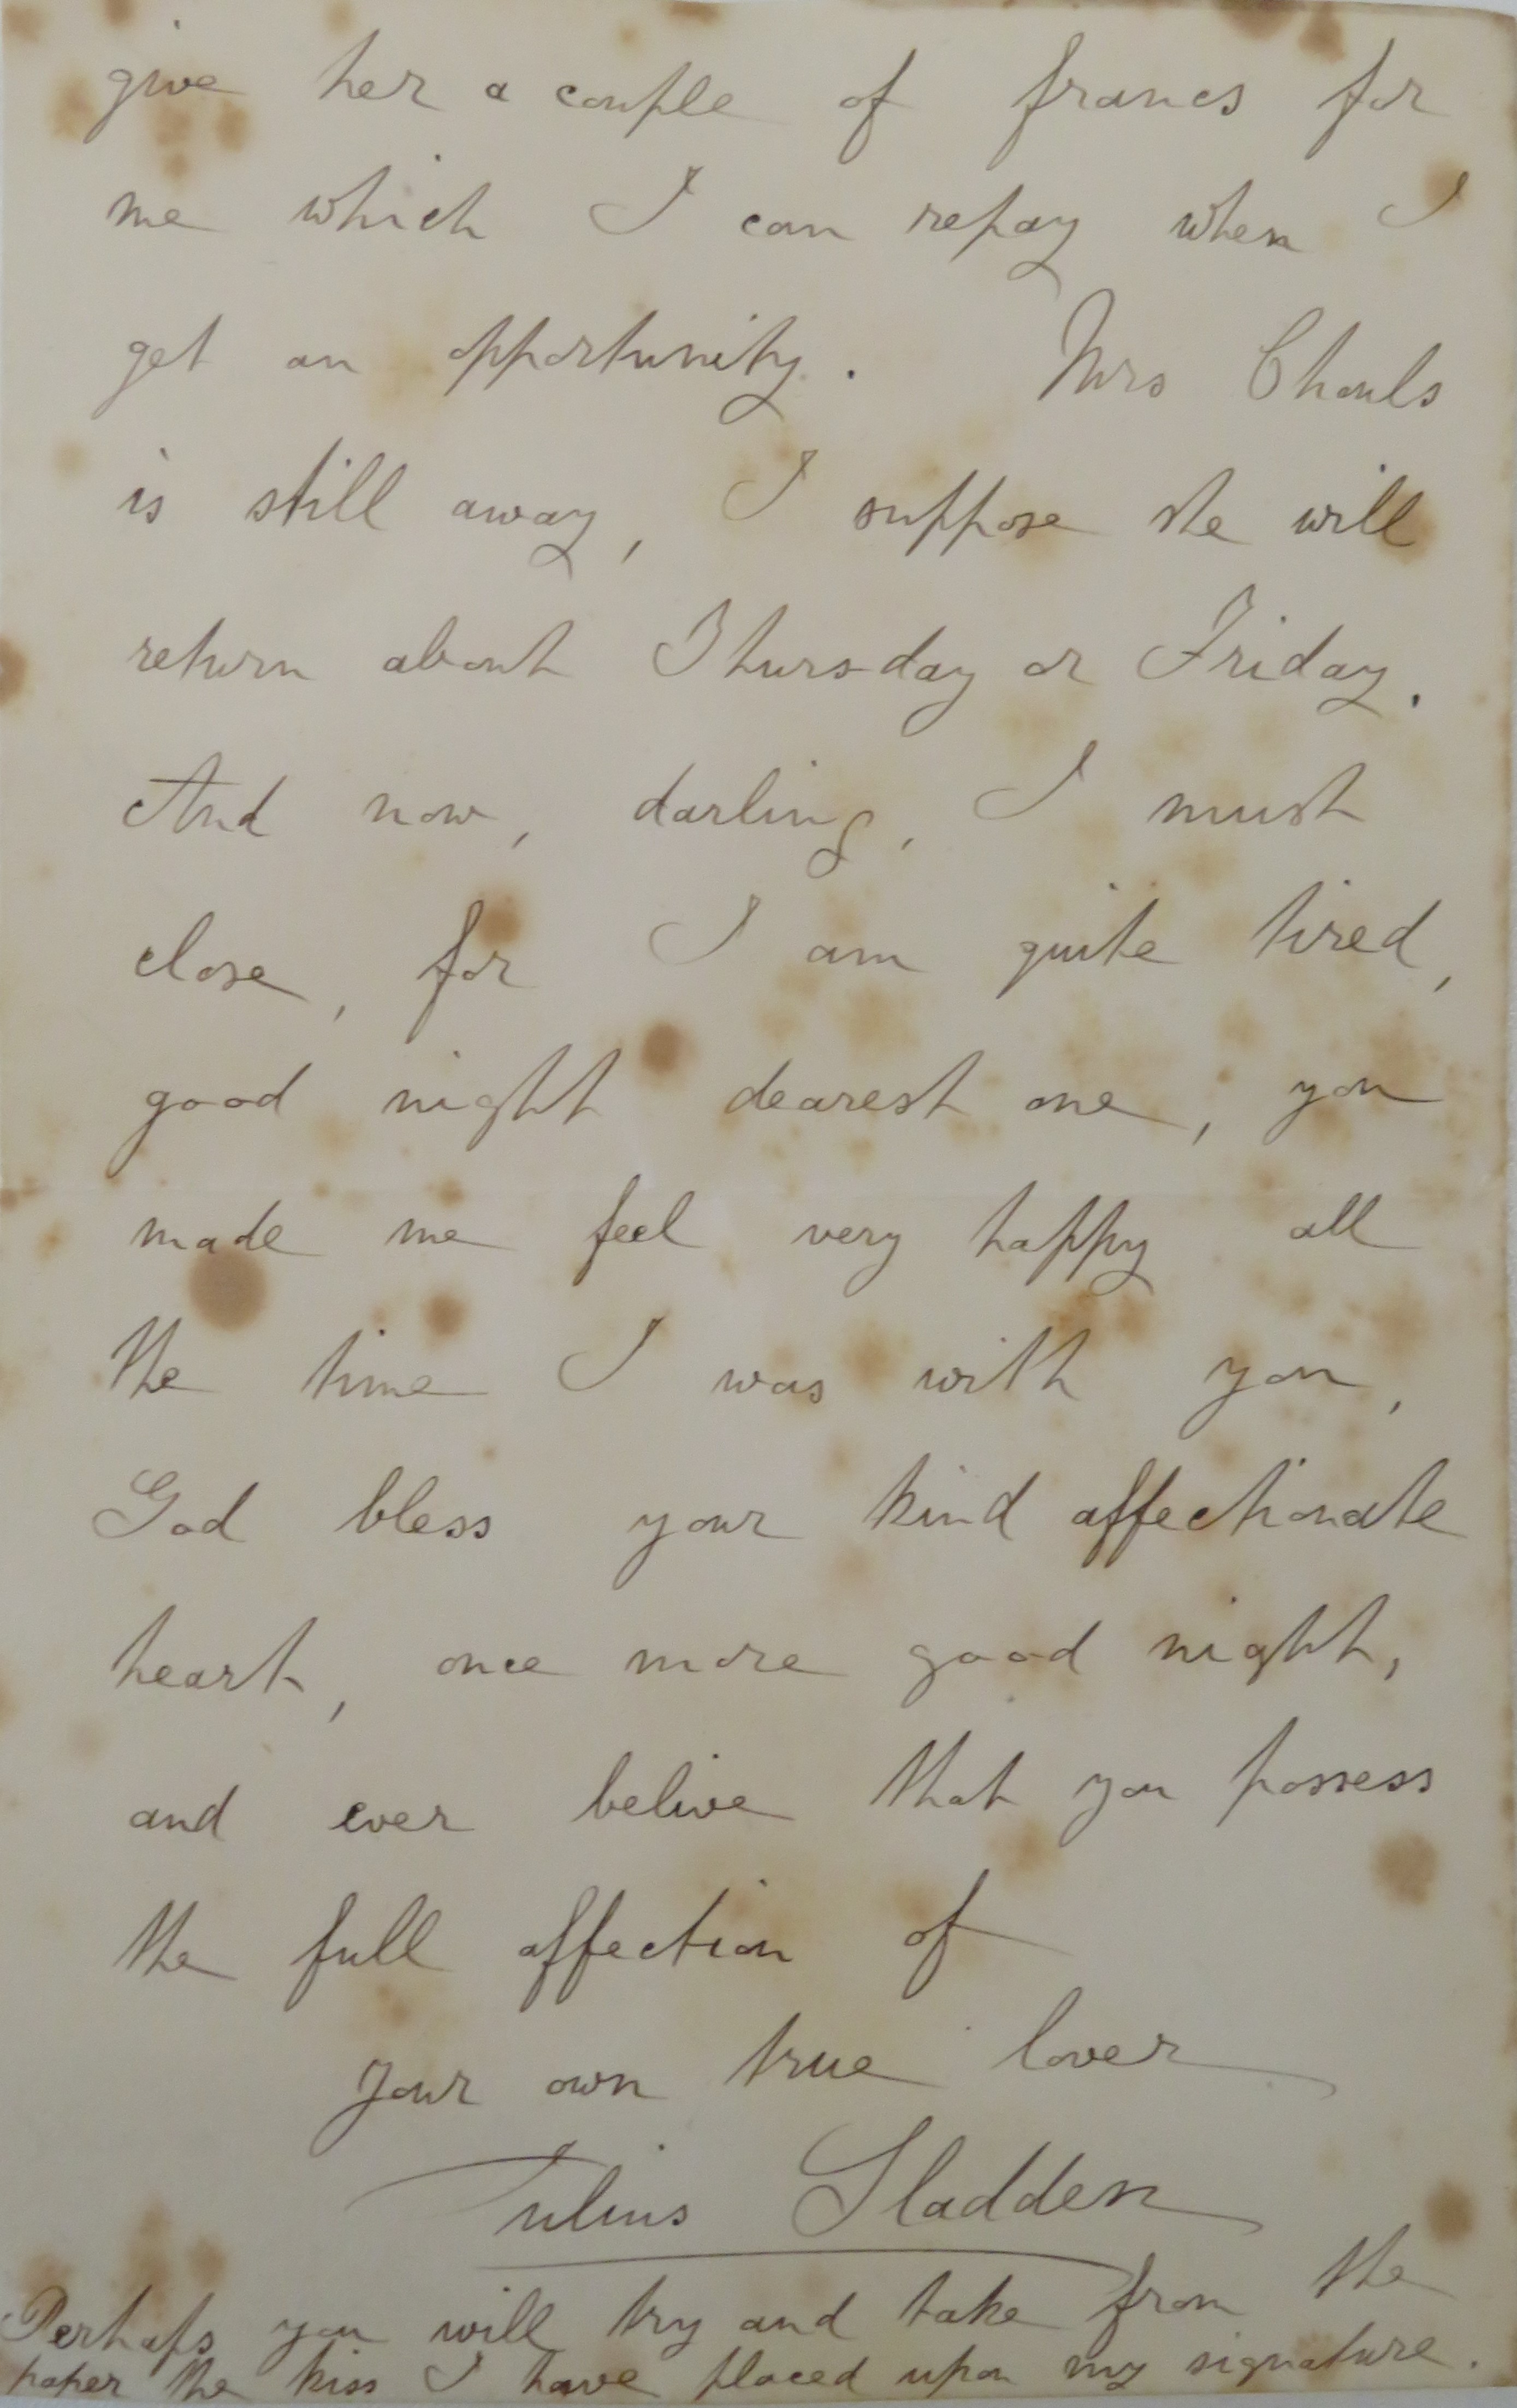 give her a couple of francs for
me which I can repay when I
get an opportunity. Mrs Chouls
is still away, I suppose she will
return about Thursday or Friday.
And now, darling, I must
close, for I am quite tired,
good night dearest one, you
made me feel very happy all
the time I was with you,
God bless your kind affectionate
heart, once more good night,
and ever belive that you possess
the full affection of
your own true lover
Julius Sladden
Perhaps you will try and take from the
paper the kiss I have placed upon my signature.